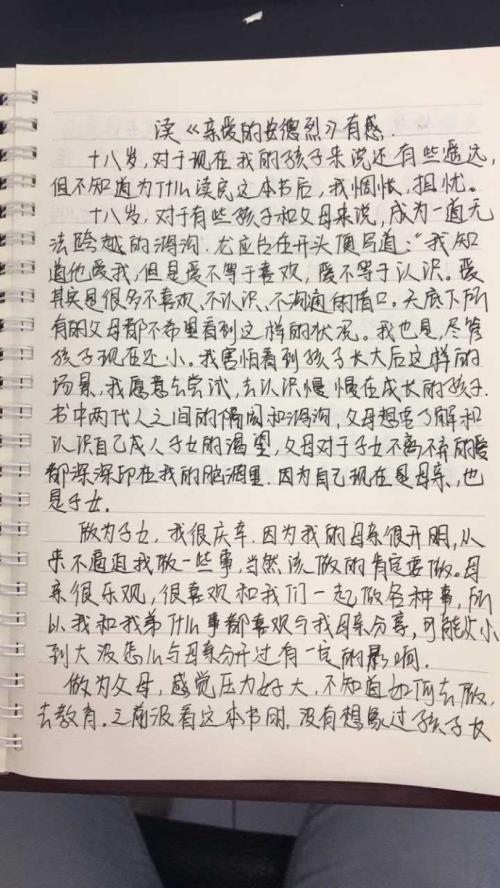 读《亲爱的安德烈》有感.
十八岁,对于现在我的孩子来说还有些遥远,
但不知道为什么读完这本书后,我惆怅,担忧。
十八岁,对于有些孩子和父母来说,成为一道无
法跨越的鸿沟.尤应台在开头便写道:“我知
道他爱我,但是爱不等于喜欢,爱不等于认识。爱
其实是很多不喜欢、不认识、不沟通的借口。天底下所
有的父母都不希望看到这样的状况。我也是,尽管
孩子现在还小。我害怕看到孩子长大后这样的
场景,我愿意去尝试,去认识慢慢在成长的孩子.
书中两代人之间的隔阂和鸿沟,父母想要了解和
认识自己成人子女的渴望,父母对于子女不离不弃的爱
都深深印在我的脑洞里.因为自己现在是母亲,也
是子女.
做为子女,我很庆幸.因为我的母亲很开明,从
来不逼迫我做一些事,当然该做的肯定要做。母
亲很乐观,很喜欢和我们一起做各种事,所
以我和我弟什么事都喜欢与我母亲分享,可能从小
到大没怎么与母亲分开过有一定的影响.
做为父母,感觉压力好大,不知道如何去做,
去教育.之前没看这本书时,没有想象过孩子长